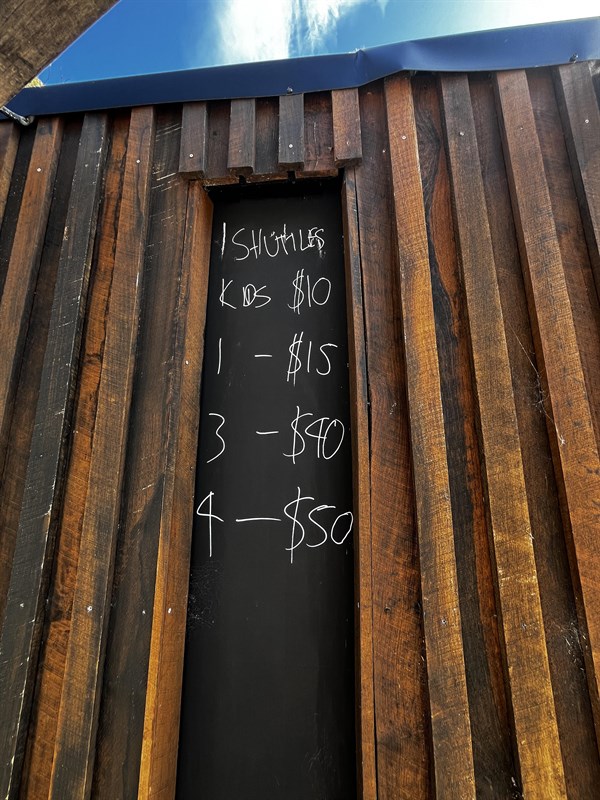 1 SHUTTLES
KIDS $10
1 - $15
3 - $40
4 - $50